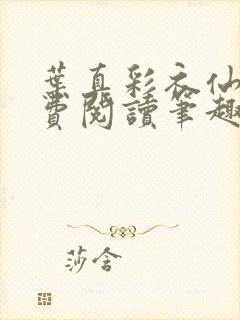 葉真彩衣仙
費閱讀筆趣
莎含